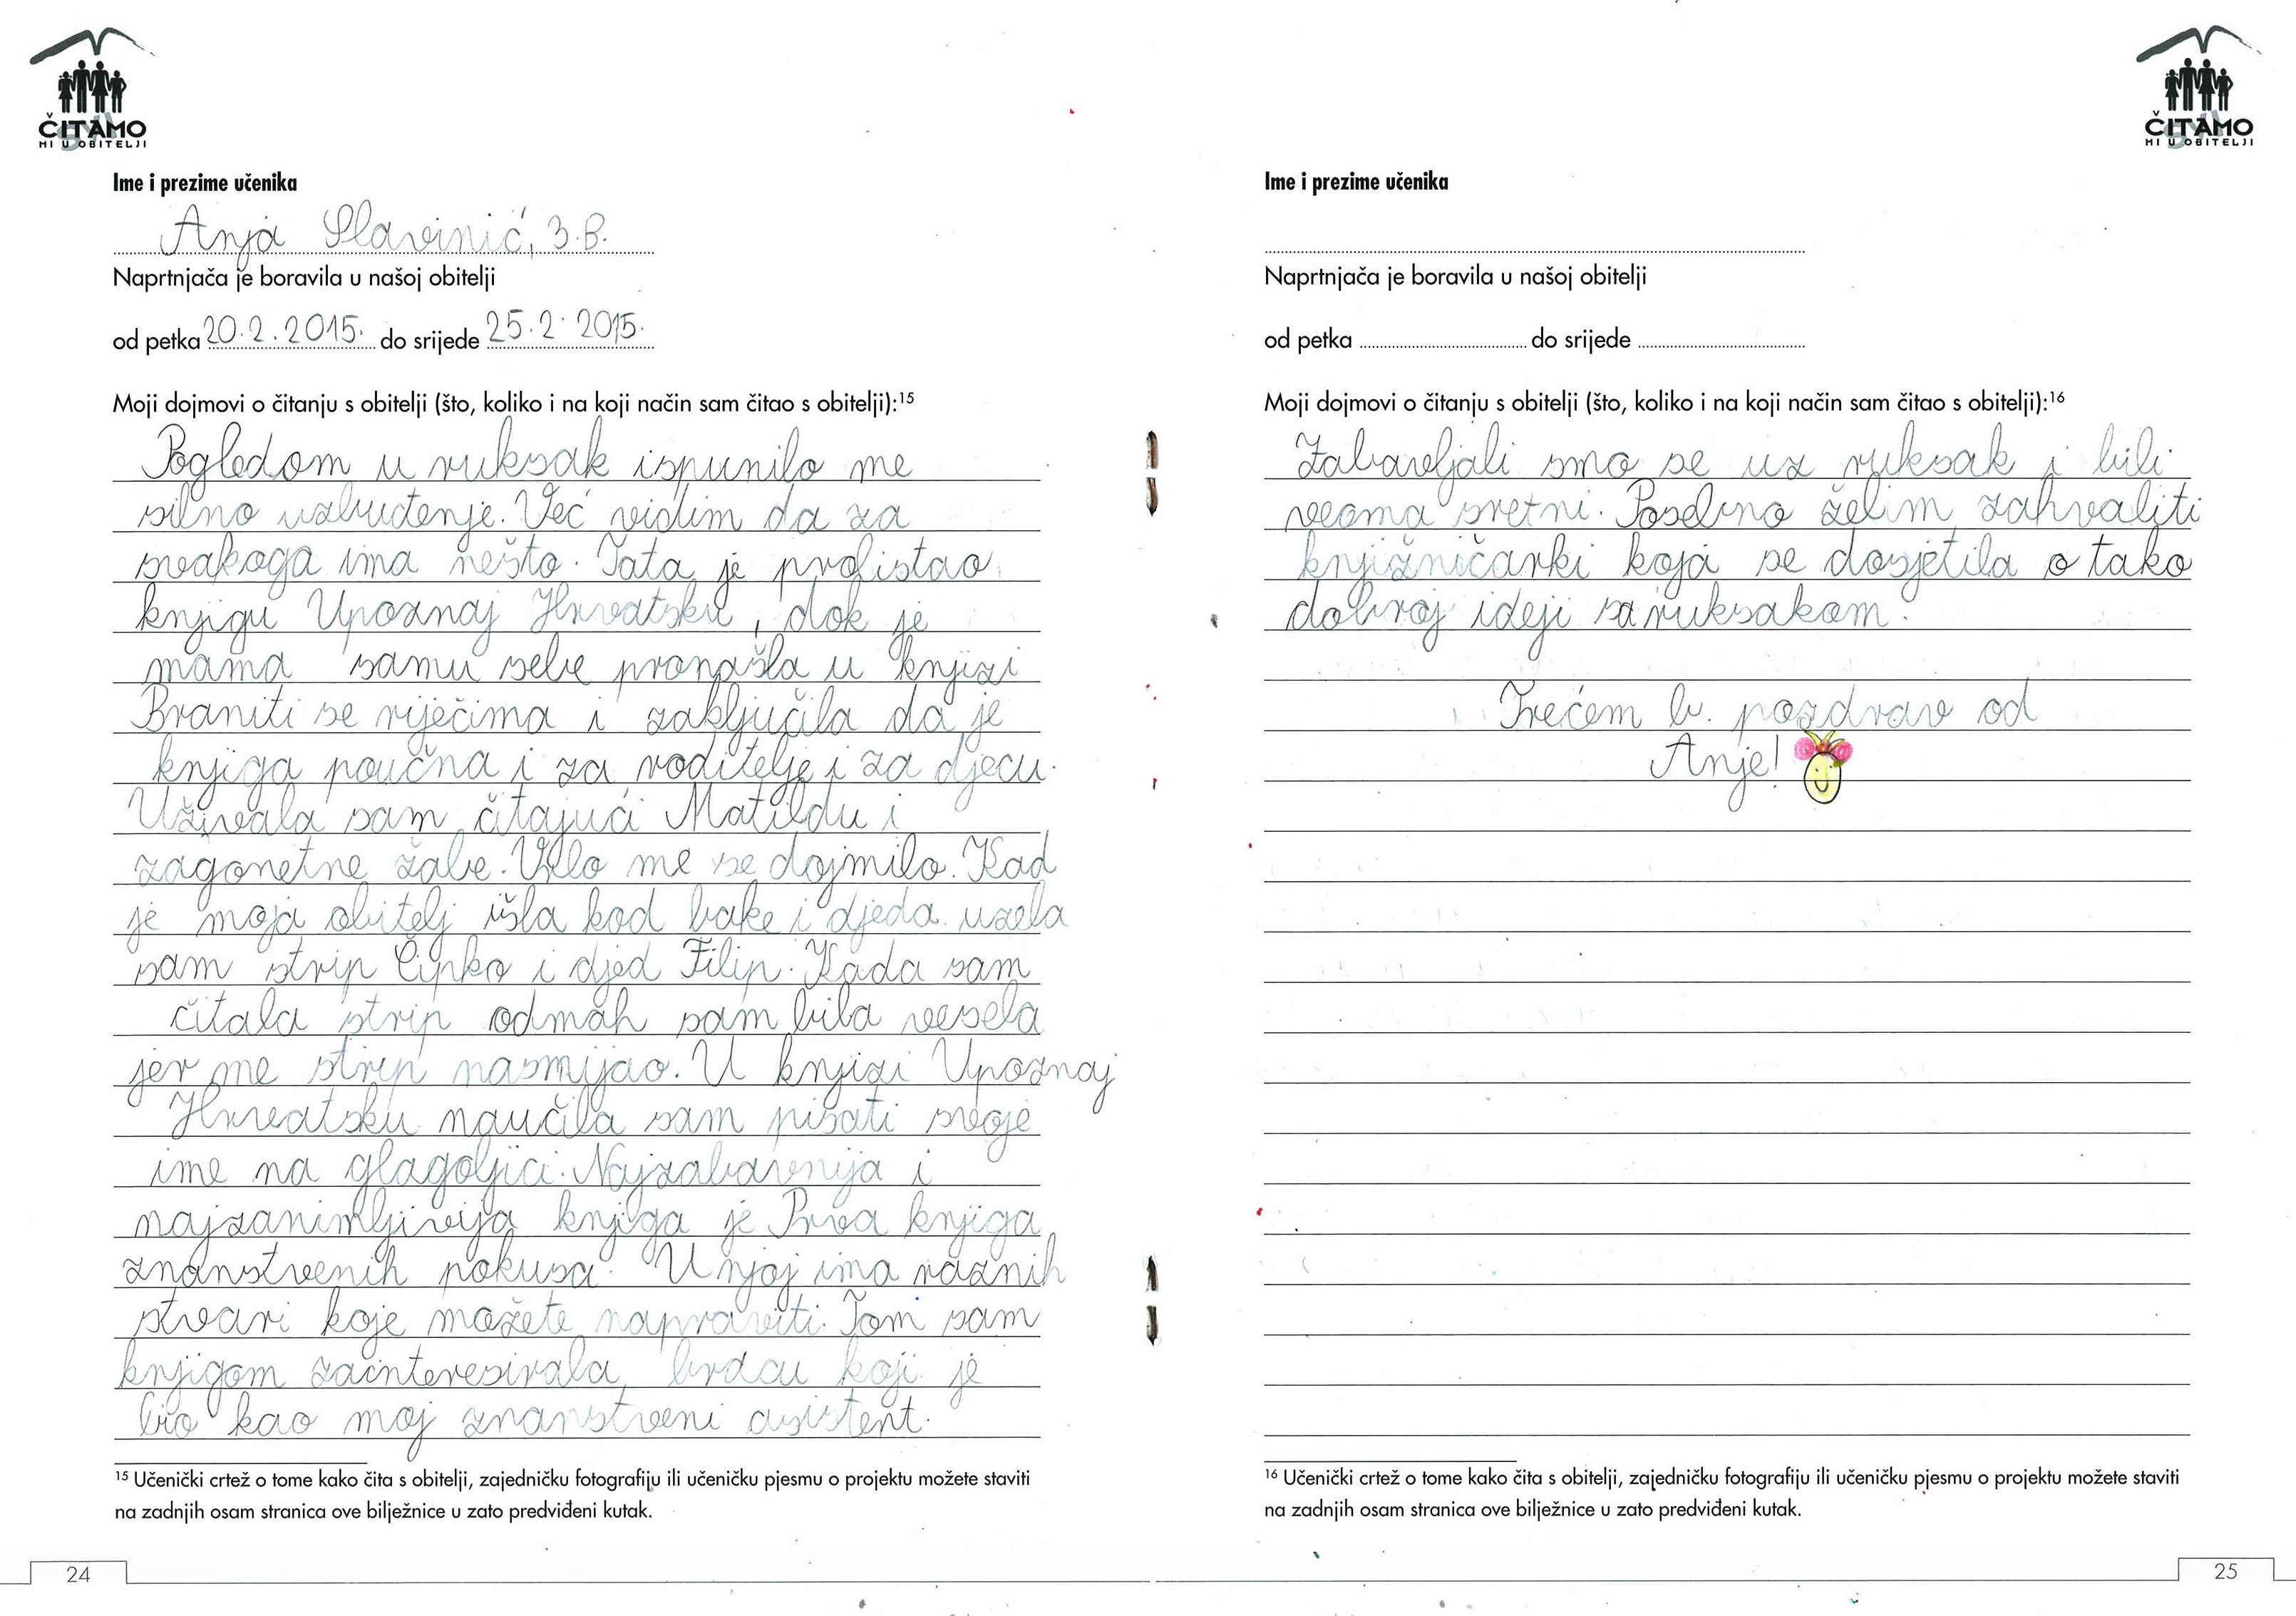 ČITAMO
MI U OBITELJI
Ime i prezime učenika
Anja Slavinić, 3.B.
Naprtnjača je boravila u našoj obitelji
od petka 20.2.2015. do srijede 25.2.2015.
Moji dojmovi o čitanju s obitelji (što, koliko i na koji način sam čitao s obitelji):15
Pogledom u ruksak ispunilo me
silno uzbuđenje. Već vidim da za
svakoga ima nešto. Tata je prolistao
knjigu Upoznaj Hrvatsku, dok je
mama samu sebe pronašla u knjizi
Braniti se riječima i zaključila da je
knjiga poučna i za roditelje i za djecu.
Uživala sam čitajući Matildu i
zagonetne žabe. Vrlo me se dojmilo. Kad
je moja obitelj išla kod bake i djeda uzela
sam strip Čipko i djed Filip. Kada sam
čitala strip odmah sam bila vesela
jer me strip nasmijao. U knjizi Upoznaj
Hrvatsku naučila sam pisati svoje
ime na glagoljici. Najzabavnija i
najzanimljivija knjiga je Prva knjiga
znanstvenih pokusa. U njoj ima raznih
stvari koje možete napraviti. Tom sam
knjigom zainteresirala bracu koji je
bio kao moj znanstveni asistent.
15 Učenički crtež o tome kako čita s obitelji, zajedničku fotografiju ili učeničku pjesmu o projektu možete staviti
na zadnjih osam stranica ove bilježnice u zato predviđeni kutak.
24
ČITAMO
MI U OBITELJI
Ime i prezime učenika
Naprtnjača je boravila u našoj obitelji
od petka do srijede
Moji dojmovi o čitanju s obitelji (što, koliko i na koji način sam čitao s obitelji):16
Zabavljali smo se uz ruksak i bili
veoma sretni. Posebno želim zahvaliti
knjižničarki koja se dosjetila o tako
dobroj ideji sa ruksakom.
Trećem b. pozdrav od
Anje!
16 Učenički crtež o tome kako čita s obitelji, zajedničku fotografiju ili učeničku pjesmu o projektu možete staviti
na zadnjih osam stranica ove bilježnice u zato predviđeni kutak.
25